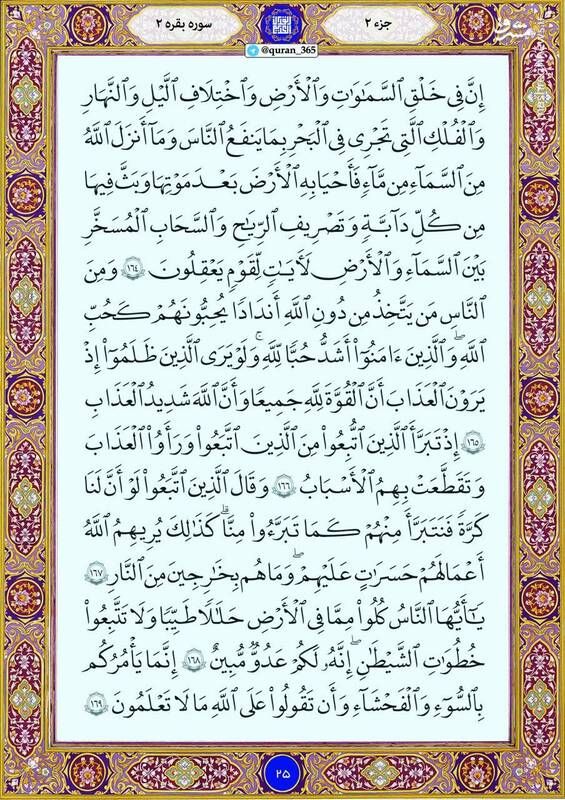 جزء ۲
سوره بقره ۲
@quran_365
إِنَّ فِي خَلْقِ ٱلسَّمَٰوَٰتِ وَٱلْأَرْضِ وَٱخْتِلَٰفِ ٱلَّيْلِ وَٱلنَّهَارِ
وَٱلْفُلْكِ ٱلَّتِي تَجْرِي فِي ٱلْبَحْرِ بِمَا يَنفَعُ ٱلنَّاسَ وَمَآ أَنزَلَ ٱللَّهُ
مِنَ ٱلسَّمَآءِ مِن مَّآءٍ فَأَحْيَا بِهِ ٱلْأَرْضَ بَعْدَ مَوْتِهَا وَبَثَّ فِيهَا
مِن كُلِّ دَآبَّةٍ وَتَصْرِيفِ ٱلرِّيَٰحِ وَٱلسَّحَابِ ٱلْمُسَخَّرِ
بَيْنَ ٱلسَّمَآءِ وَٱلْأَرْضِ لَأٓيَٰتٍ لِّقَوْمٍ يَعْقِلُونَ ١٦٤ وَمِنَ
ٱلنَّاسِ مَن يَتَّخِذُ مِن دُونِ ٱللَّهِ أَندَادًا يُحِبُّونَهُمْ كَحُبِّ
ٱللَّهِۖ وَٱلَّذِينَ ءَامَنُوٓا۟ أَشَدُّ حُبًّا لِّلَّهِۗ وَلَوْ يَرَى ٱلَّذِينَ ظَلَمُوٓا۟ إِذْ
يَرَوْنَ ٱلْعَذَابَ أَنَّ ٱلْقُوَّةَ لِلَّهِ جَمِيعًا وَأَنَّ ٱللَّهَ شَدِيدُ ٱلْعَذَابِ
١٦٥ إِذْ تَبَرَّأَ ٱلَّذِينَ ٱتُّبِعُوا۟ مِنَ ٱلَّذِينَ ٱتَّبَعُوا۟ وَرَأَوُا۟ ٱلْعَذَابَ
وَتَقَطَّعَتْ بِهِمُ ٱلْأَسْبَابُ ١٦٦ وَقَالَ ٱلَّذِينَ ٱتَّبَعُوا۟ لَوْ أَنَّ لَنَا
كَرَّةً فَنَتَبَرَّأَ مِنْهُمْ كَمَا تَبَرَّءُوا۟ مِنَّاۗ كَذَٰلِكَ يُرِيهِمُ ٱللَّهُ
أَعْمَٰلَهُمْ حَسَرَٰتٍ عَلَيْهِمْۖ وَمَا هُم بِخَٰرِجِينَ مِنَ ٱلنَّارِ ١٦٧
يَٰٓأَيُّهَا ٱلنَّاسُ كُلُوا۟ مِمَّا فِي ٱلْأَرْضِ حَلَٰلًا طَيِّبًا وَلَا تَتَّبِعُوا۟
خُطُوَٰتِ ٱلشَّيْطَٰنِۚ إِنَّهُۥ لَكُمْ عَدُوٌّ مُّبِينٌ ١٦٨ إِنَّمَا يَأْمُرُكُم
بِٱلسُّوٓءِ وَٱلْفَحْشَآءِ وَأَن تَقُولُوا۟ عَلَى ٱللَّهِ مَا لَا تَعْلَمُونَ ١٦٩
۲۵